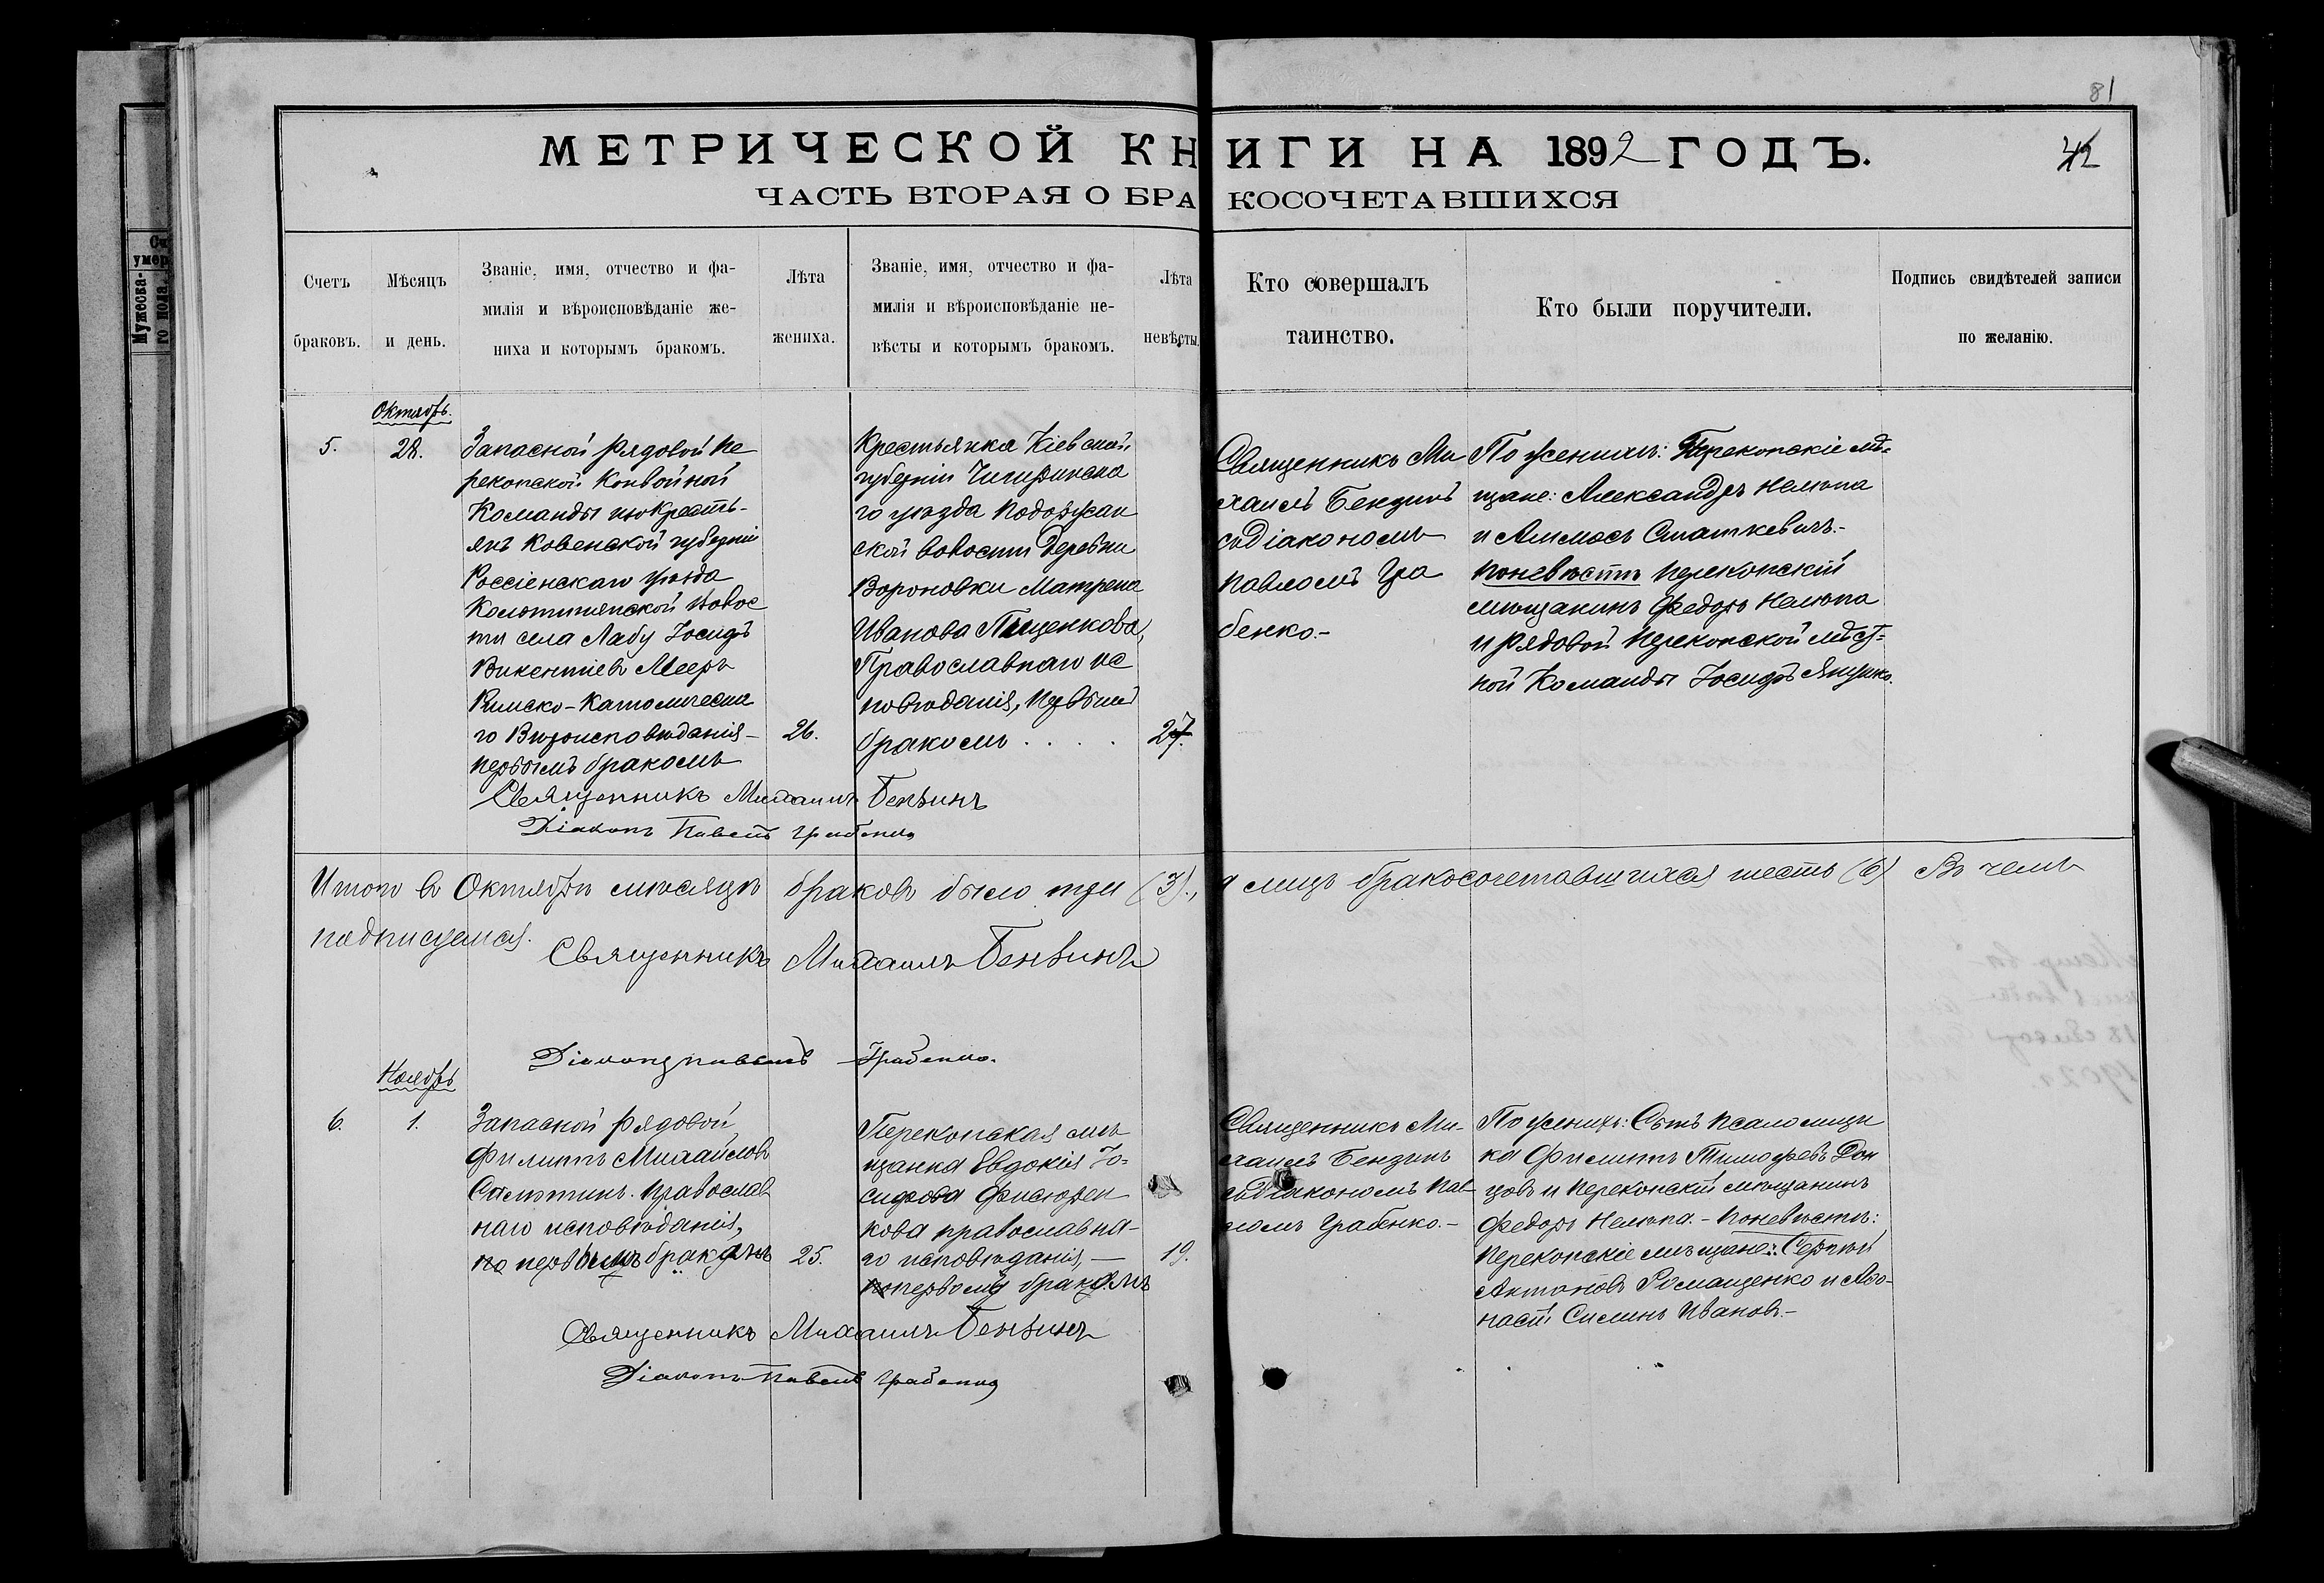 81
МЕТРИЧЕСКОЙ КНИГИ НА 1892 ГОДЪ.
42
ЧАСТЬ ВТОРАЯ О БРАКОСОЧЕТАВШИХСЯ
Счетъ
браковъ.
Мѣсяцъ
и день.
Званіе, имя, отчество и фа-
милія и вѣроисповѣданіе же-
ниха и которымъ бракомъ.
Лѣта
жениха.
Званіе, имя, отчество и фа-
милія и вѣроисповѣданіе не-
вѣсты и которымъ бракомъ.
Лѣта
невѣсты.
Кто совершалъ
таинство.
Кто были поручители.
Подпись свидѣтелей записи
по желанію.
Октябрь.
5.
28.
Запасной рядовой Пе
рекопской Конвойной
Команды изъ Кресть-
янъ Ковенской губерніи
Россіенскаго уѣзда
волос
ти села Лабу Іосифъ
Викентіевъ Мееръ
Римско-Католическа
го Вѣроисповѣданія-
первымъ бракомъ
26.
Крестьянка Кіевской
губерніи Чигиринска
го уѣзда
ской волости деревни
Вороновки Матрена
Иванова Пищенкова,
Православнаго ис
повѣданія, первымъ
бракомъ . . . .
27.
Священникъ Ми
хаилъ Бензинъ
съ діакономъ
Павломъ Гра
бенко.-
По женихѣ: Перекопскіе мѣ-
щане: Александръ Нелюпа
и Статкевичъ.-
По невѣстѣ Перекопскій
мѣщанинъ Федоръ Нелюпа
и рядовой Перекопской мѣст-
ной Команды Іосифъ
Священникъ Михаилъ Бензинъ
Діаконъ Павелъ Грабенко
Итого въ Октябрѣ мѣсяцѣ браковъ было три (3)., а лицъ бракосочетавшихся шесть (6) Въ чемъ
подписуемся.
Священникъ Михаилъ Бензинъ
Діаконъ Павелъ Грабенко.
Ноябрь
6.
1.
Запасной рядовой
Филиппъ Михайловъ
Православ
наго исповѣданія,
по первымъ бракомъ
25.
Перекопская мѣ
щанка Евдокія Іо-
сифова
кова православна-
го исповѣданія,-
по первому бракомъ
19.
Священникъ Ми-
хаилъ Бензинъ
съ діакономъ Пав-
ломъ Грабенко.-
По женихѣ: Сынъ псаломщи
ка Филиппъ Тимофеевъ Дон
цовъ и Перекопскій мѣщанинъ
Федоръ Нелюпа.- По невѣстѣ:
Перекопскіе мѣщане: Сергѣй
Антоновъ Ромащенко и Афо-
насій Силинъ Ивановъ.-
Священникъ Михаилъ Бензинъ
Діаконъ Павелъ Грабенко